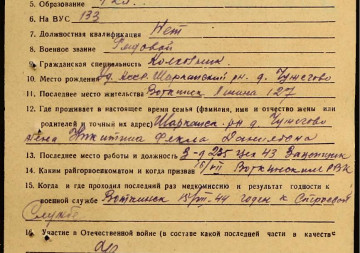 5. Образование 4 кл.
6. На ВУС 133
7. Должностная квалификация Нет
8. Военное звание Рядовой
9. Гражданская специальность Колхозник
10. Место рождения Уд. АССР. Шарканский р-н д. Чужегово
11. Последнее место жительства Воткинск Ленина 127
12. Где проживает в настоящее время семья (фамилия, имя и отчество жены или
родителей и точный их адрес) Шарканск. р-н д. Чужегово
жена Никитина Фекла Даниловна
13. Последнее место работы и должность З-д 235 цех 43
14. Каким райгорвоенкоматом и когда призван Воткинским РВК
15. Когда и где проходил последний раз медкомиссию и результат годности к
военной службе Воткинск 44 годен к Строевой
Службе
16. Участие в Отечественной войне (в составе какой последней части и в качестве